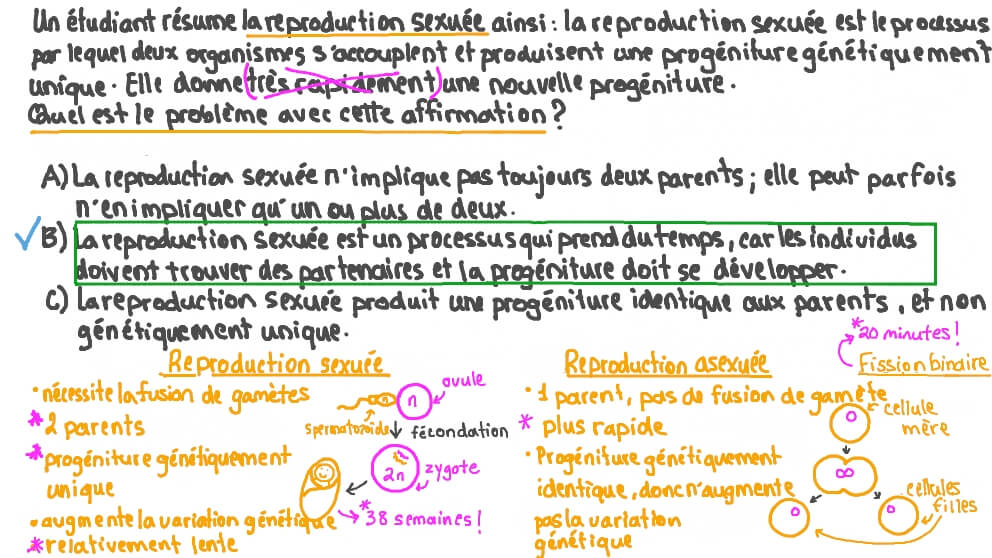 Un étudiant résume la reproduction sexuée ainsi : la reproduction sexuée est le processus
par lequel deux organismes s'accouplent et produisent une progéniture génétiquement
unique. Elle donne (très rapidement) une nouvelle progéniture.
Quel est le problème avec cette affirmation ?
A) La reproduction sexuée n'implique pas toujours deux parents ; elle peut parfois
n'en impliquer qu'un ou plus de deux.
B) La reproduction sexuée est un processus qui prend du temps, car les individus
doivent trouver des partenaires et la progéniture doit se développer.
C) La reproduction sexuée produit une progéniture identique aux parents, et non
génétiquement unique.
Reproduction sexuée
• nécessite la fusion de gamètes
* 2 parents
* progéniture génétiquement
unique
• augmente la variation génétique
* relativement lente
ovule
n
spermatozoïde
fécondation
2n
zygote
* 38 semaines !
Reproduction asexuée
• 1 parent, pas de fusion de gamète
* plus rapide
• Progéniture génétiquement
identique, donc n'augmente
pas la variation
génétique
* 20 minutes !
Fission binaire
cellule
mère
cellules
filles